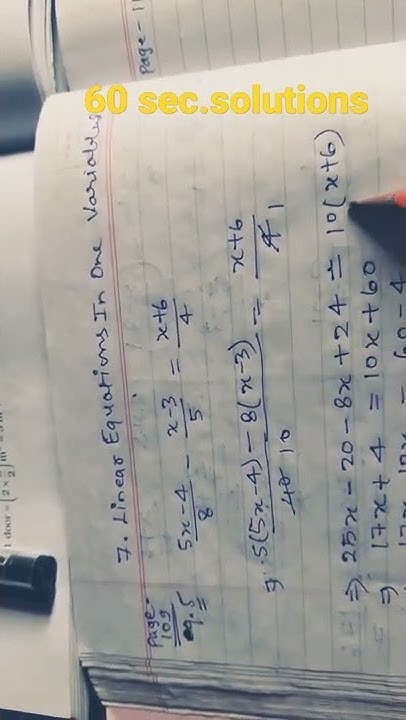 60 sec.solutions
Page - 11
7. Linear Equations In One Variables
Page-
109
eq.5
5x-4/8 - x-3/5 = x+6/4
⇒ 5(5x-4) - 8(x-3)/40 10 = x+6/4 1
⇒ 25x-20-8x+24 = 10(x+6)
⇒ 17x+4 = 10x+60
1 door =